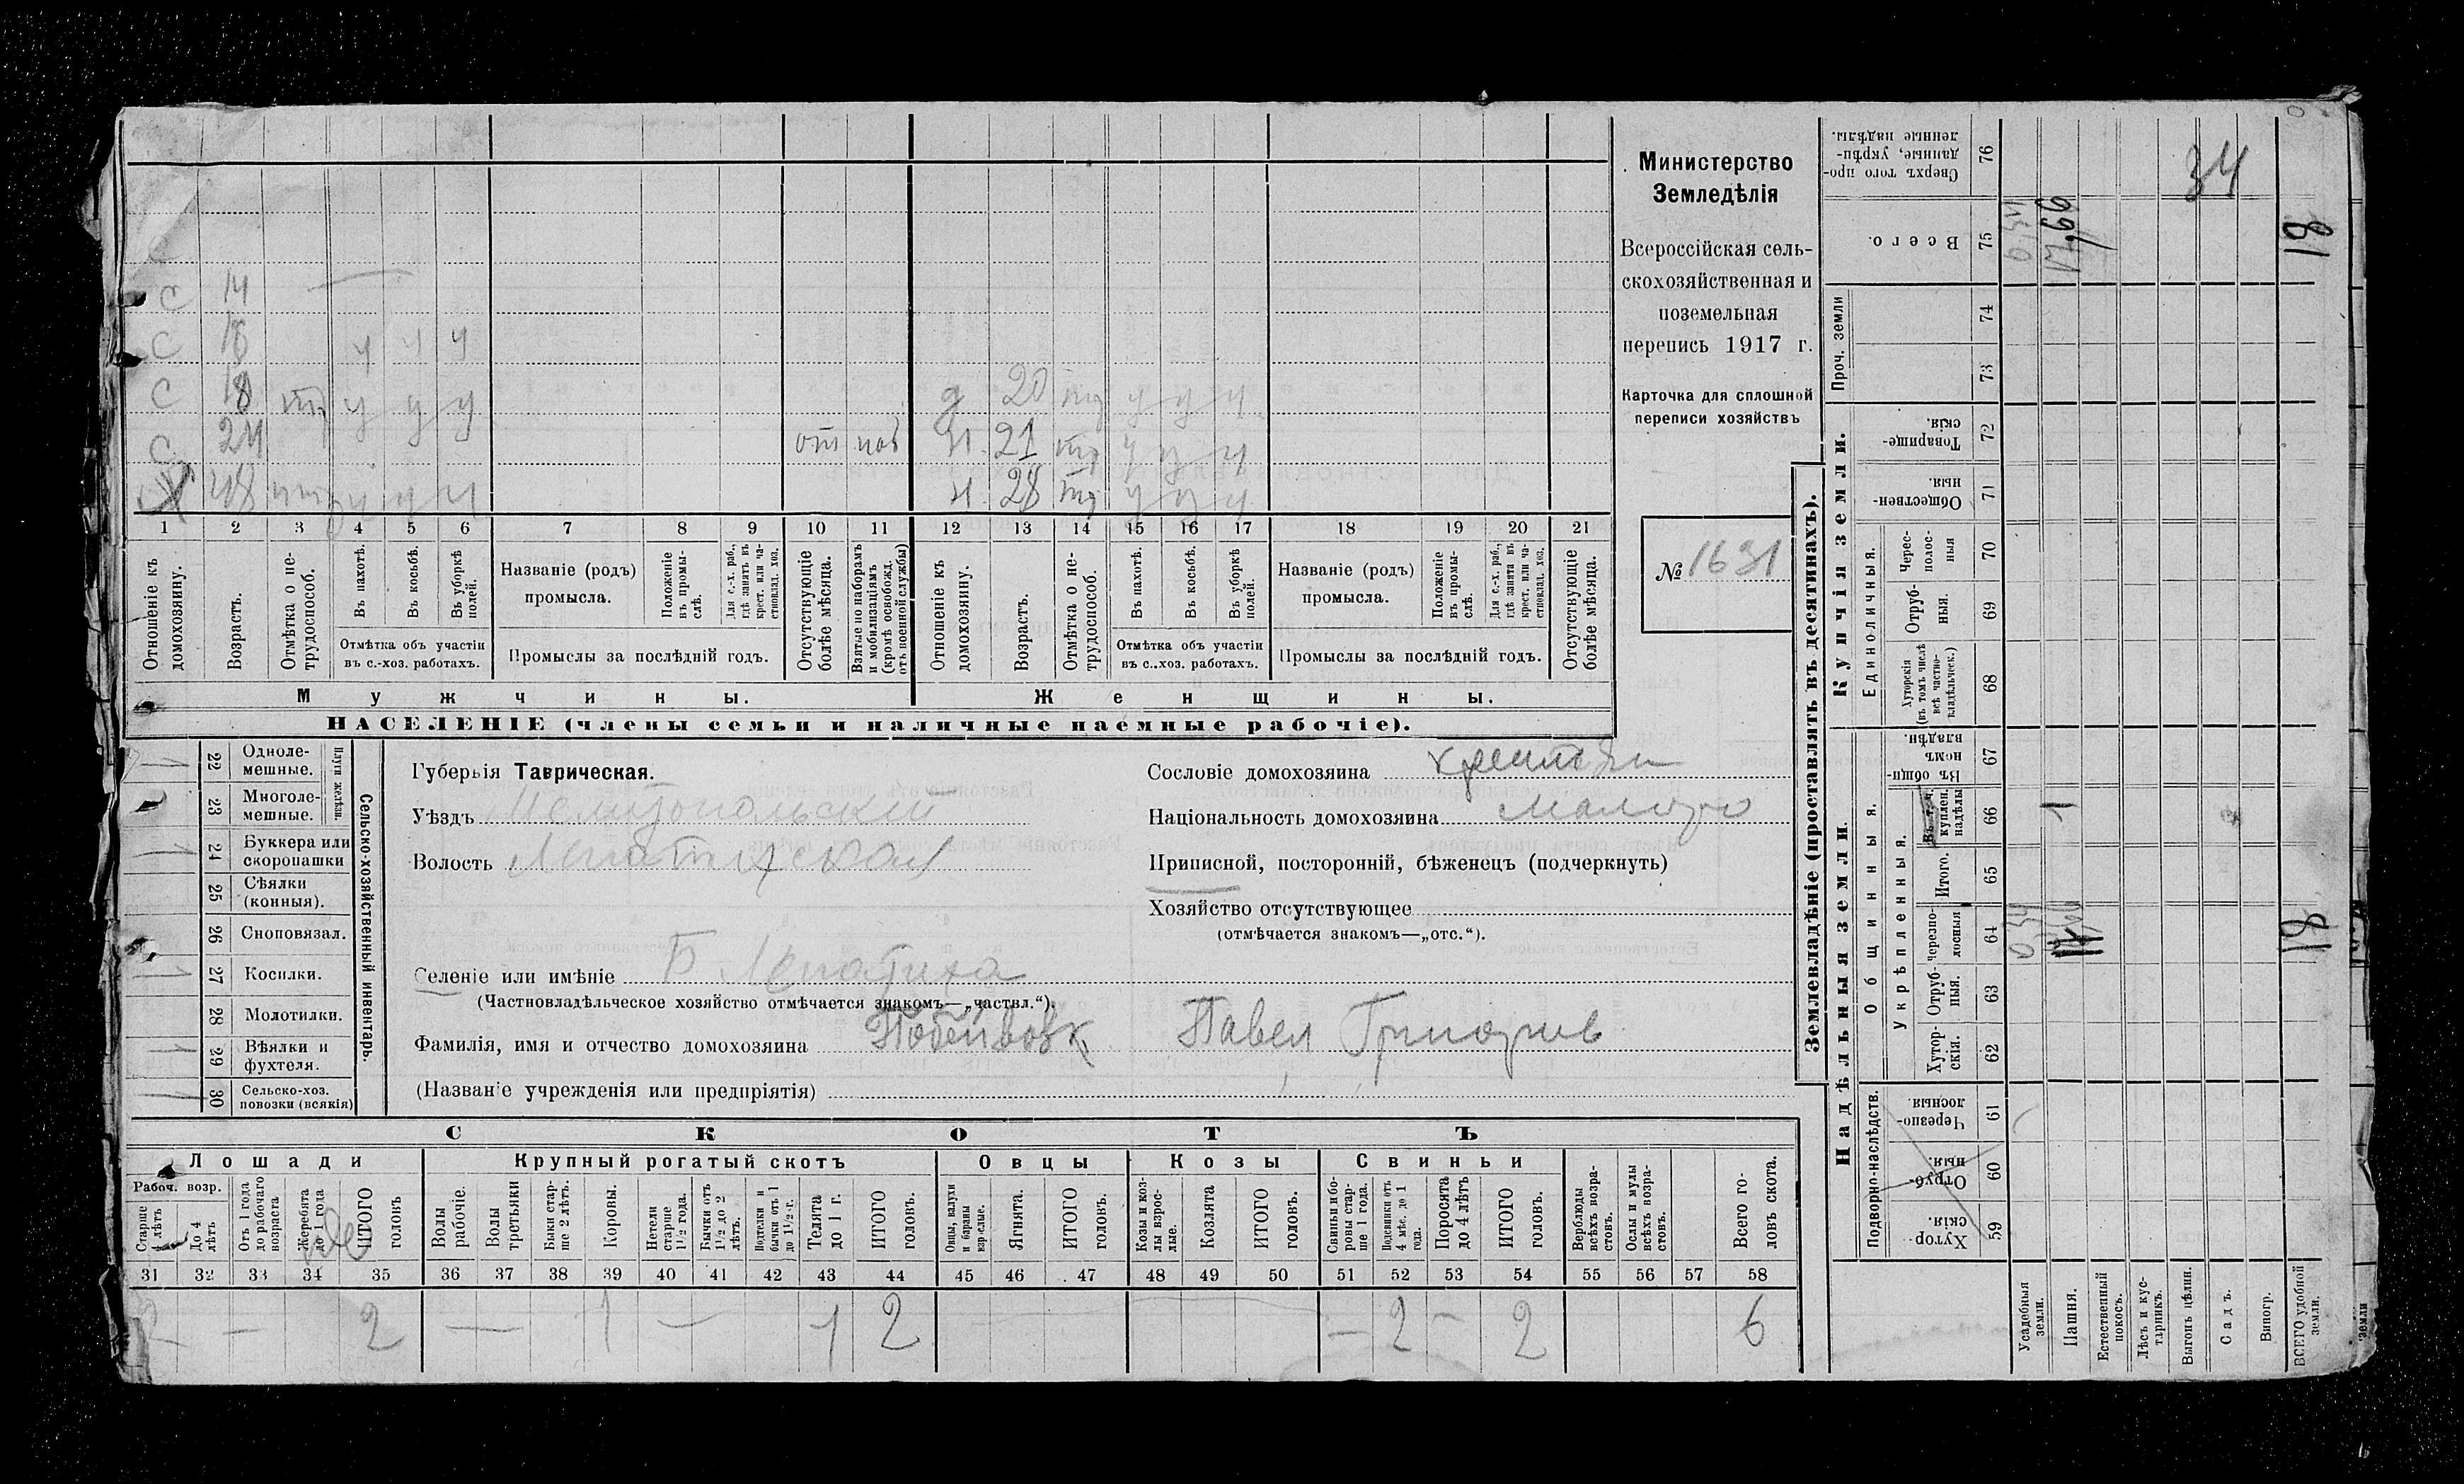 Министерство
Земледѣлія
Всероссійская сель-
скохозяйственная и
поземельная
перепись 1917 г.
Карточка для сплошной
переписи хозяйствъ
№ 1631
С 14 —
С 16 ч ч ч
С 18 у у у д 20 у у у
С 24 от Н 21 у у у
48 у у ч Н 28 у у у
1 2 3 4 5 6 7 8 9 10 11 12 13 14 15 16 17 18 19 20 21
Отношеніе къ домохозяину.
Возрастъ.
Отмѣтка о не-трудоспособ.
Въ пахотѣ.
Въ косьбѣ.
Въ уборкѣ полей.
Отмѣтка объ участіи
въ с.-хоз. работахъ.
Названіе (родъ)
промысла.
Положеніе въ промы-слѣ.
Для с.-х. раб., гдѣ занятъ въ крест. или ча-стновлад. хоз.
Промыслы за послѣдній годъ.
Отсутствующіе болѣе мѣсяца.
Взятые по наборамъ и мобилизаціямъ (кромѣ освобожд. отъ военной службы)
Отношеніе къ домохозяину.
Возрастъ.
Отмѣтка о не-трудоспособ.
Въ пахотѣ.
Въ косьбѣ.
Въ уборкѣ полей.
Отмѣтка объ участіи
въ с.-хоз. работахъ.
Названіе (родъ)
промысла.
Положеніе въ промы-слѣ.
Для с.-х. раб., гдѣ занята въ крест. или ча-стновлад. хоз.
Промыслы за послѣдній годъ.
Отсутствующіе болѣе мѣсяца.
Мужчины. Женщины.
НАСЕЛЕНІЕ (члены семьи и наличные наемные рабочіе).
Сельско-хозяйственный инвентарь.
Плуги желѣзн.
22 Одноле-мешные.
23 Многоле-мешные.
24 Буккера или скоропашки
25 Сѣялки (конныя).
26 Сноповязал.
27 Косилки.
28 Молотилки.
29 Вѣялки и фухтеля.
30 Сельско-хоз. повозки (всякія)
Губернія Таврическая.
Уѣздъ Мелитопольский
Волость Лепатихская
Селеніе или имѣніе Б Лепатиха
(Частновладѣльческое хозяйство отмѣчается знакомъ—„частвл.“).
Фамилія, имя и отчество домохозяина Павел Григориев
(Названіе учрежденія или предпріятія)
Сословіе домохозяина
Національность домохозяина Малоро
Приписной, посторонній, бѣженецъ (подчеркнуть)
Хозяйство отсутствующее
(отмѣчается знакомъ—„отс.“).
СКОТЪ
Лошади Крупный рогатый скотъ Овцы Козы Свиньи
Рабоч. возр.
Старше 4 лѣтъ
До 4 лѣтъ
Отъ 1 года до рабочаго возраста
Жеребята до 1 года
ИТОГО головъ
Волы рабочіе.
Волы третьяки
Быки стар-ше 2 лѣтъ.
Коровы.
Нетели старше 1½ года.
Бычки отъ 1½ до 2 лѣтъ.
Подтелки и бычки отъ 1 до 1½ г.
Телята до 1 г.
ИТОГО головъ.
Овцы, валухи и бараны взрослые.
Ягнята.
ИТОГО головъ.
Козы и коз-лы взрос-лые.
Козлята
ИТОГО головъ.
Свиньи и бо-ровы стар-ше 1 года.
Подсвинки отъ 4 мѣс. до 1 года.
Поросята до 4 лѣтъ
ИТОГО головъ.
Верблюды всѣхъ возра-стовъ.
Ослы и мулы всѣхъ возра-стовъ.
Всего го-ловъ скота.
31 32 33 34 35 36 37 38 39 40 41 42 43 44 45 46 47 48 49 50 51 52 53 54 55 56 57 58
2 — 2 — 1 — 1 2 — 2 — 2 6
Землевладѣніе (проставлять въ десятинахъ).
Надѣльныя земли. Купчія земли. Проч. земли
Подворно-наслѣдств.
Общинныя.
Укрѣпленныя.
Единоличныя.
Хутор-скія. 59
Отруб-ныя. 60
Черезпо-лосныя. 61
Хутор-скія. 62
Отруб-ныя. 63
Черезпо-лосныя 64
Итого. 65
Въ т. ч. куплен. надѣлы 66
Въ общи-номъ владѣн. 67
Хуторскія (въ томъ числѣ всѣ частно-владѣльческ.) 68
Отруб-ныя. 69
Черес-полос-ныя 70
Обществен-ныя. 71
Товарище-скія. 72
73
74
Всего. 75
Сверхъ того про-данные, укрѣп-ленные надѣлы. 76
Усадебныя земли.
Пашня.
Естественный покосъ.
Лѣсъ и кус-тарникъ.
Выгонъ цѣлин.
Садъ.
Виногр.
ВСЕГО удобной земли.
земли
034
034
17,66
1
34
18
18